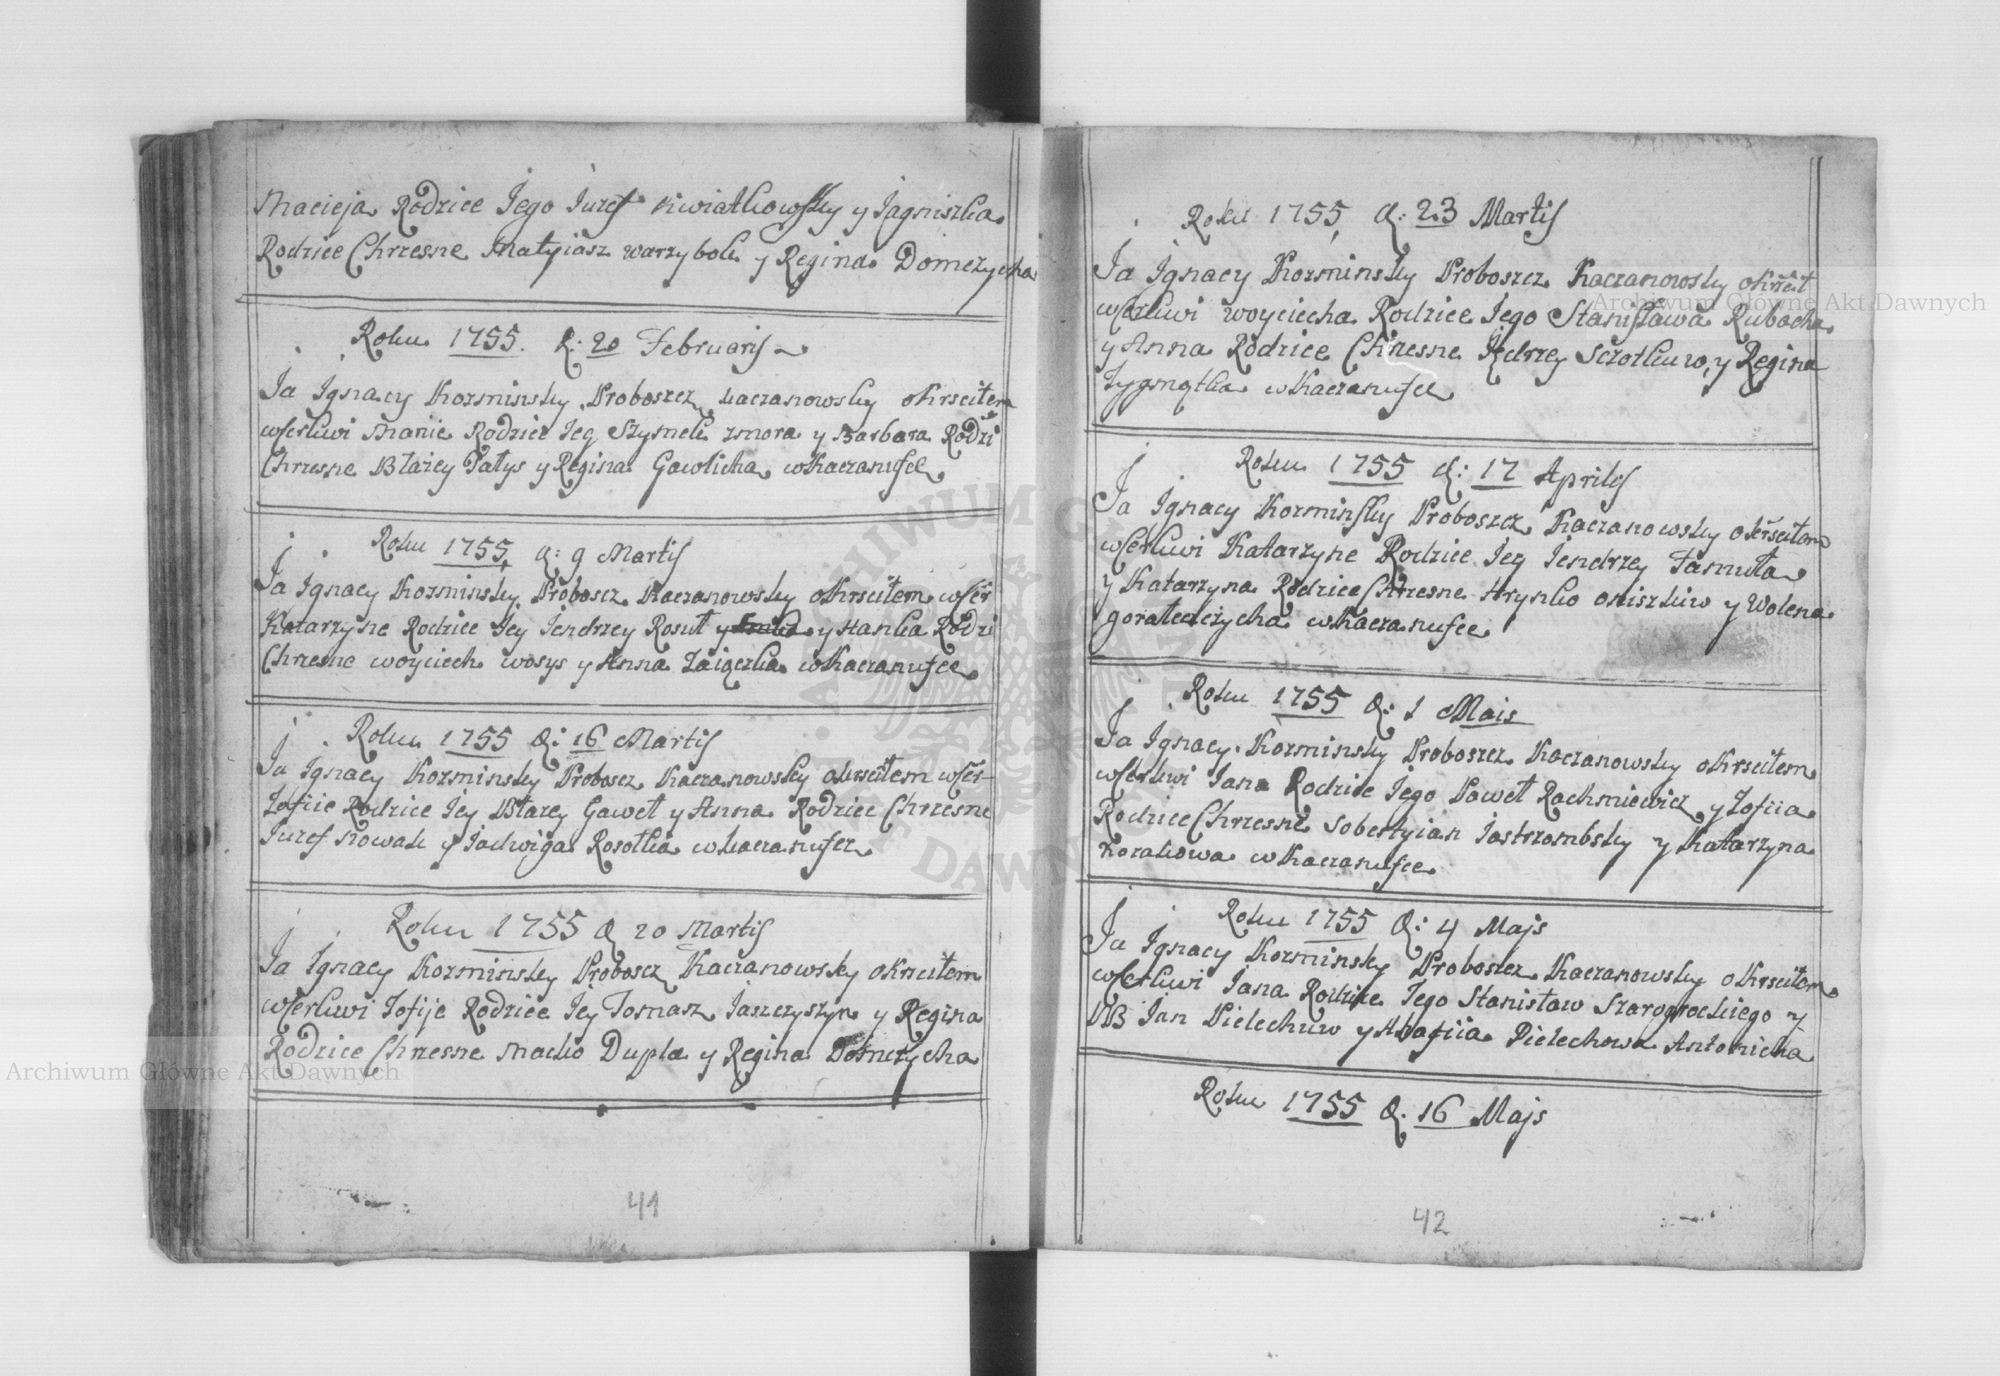 Macieja Rodzice Jego Juzef Kwiatkowsky y Jagniszka
Rodzice Chrzesne Matyiasz warzybok y Regina Domczycha
Roku 1755. d: 20 Februaris
Ja Ignacy Kozminsky Proboszcz kaczanowsky okrscitem
wserkwi Manie Rodzice Jey Szymek zmora y Barbara Rodzi
Chrzesne Błazey Pałys y Regina Gawlicha wKaczanufce
Roku 1755, d: 9 Martis
Ja Ignacy Kozminsky Proboscz Kaczanowsky okrscitem wser
Katarzyne Rodzice Jey Jendrzey Rosuł y Hanka Rodzi
Chrzesne woyciech wosys y Anna Zaiączka wKaczanufce
Roku 1755 d: 16 Martis
Ja Ignacy Kozminsky Proboscz Kaczanowsky okrscitem wser-
Zofiie Rodzice Jey Błazey Gaweł y Anna Rodzice Chrzesne
Juzef Nowak y Jadwiga Rosolka wkaczanufcz
Roku 1755 d 20 Martis
Ja Ignacy Kozminsky Proboscz Kaczanowsky okrscitem
wserkwi Zofije Rodzice Jey Tomasz Jaszczyszyn y Regina
Rodzice Chrzesne Macko Dupla y Regina Domczycha
41
Roku 1755, d: 23 Martis
Ja Ignacy Kozminsky Proboszcz Kaczanowsky okrścit
wserkwi woyciecha Rodzice Jego Stanisława Rubacha
y Anna Rodzice Chrzesne Jędrzey Szotkuw, y Regina
Zygmątka wKaczanufce
Roku 1755 d: 17 Aprilis
Ja Ignacy Kozminsky Proboszcz Kaczanowsky okrscitem
wserkwi Katarzyne Rodzice Jey Jendrzey Famuła
y Katarzyna Rodzice Chrzesne Hrynko oniszkiw y Wolena
wKaczanufce
Roku 1755 d: 1 Mais
Ja Ignacy Kozminsky Proboszcz Kaczanowsky okrscitem
wserkwi Jana Rodzice Jego Paweł Rachmiewicz y Zofiia
Rodzice Chrzesne Sobestyian Jastrzombsky y Katarzyna
Kozakowa wKaczanufce
Roku 1755 d: 4 Majs
Ja Ignacy Kozminsky Proboszcz Kaczanowsky okrscitem
wserkwi Jana Rodzice Jego Stanisław Szarogrockiego y
Jan Pielechuw y Pielechowa Antonicha
Roku 1755 d. 16 Majs
42
Archiwum Główne Akt Dawnych
Archiwum Główne Akt Dawnych
ARCHIWUM GŁÓWNE AKT DAWNYCH